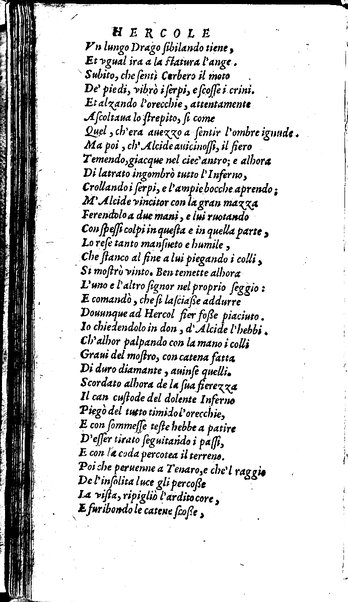 HERCOLE
Vn lungo Drago sibilando tiene,
Et vgual ira a la statura l'ange.
Subito, che sentì Cerbero il moto
De' piedi, vibrò i serpi, e scosse i crini.
Et alzando l'orecchie, attentamente
Ascoltaua lo strepito, si come
Quel, ch'era auezzo a sentir l'ombre ignude.
Ma poi, ch'Alcide auicinossi, il fiero
Temendo, giacque nel ciec'antro; e alhora
Di latrato ingombrò tutto l'Inferno,
Crollando i serpi, e l'ampie bocche aprendo;
M'Alcide vincitor con la gran mazza
Ferendolo a due mani, e lui ruotando
Con spessi colpi in questa e in quella parte,
Lo rese tanto mansueto e humile,
Che stanco al fine a lui piegando i colli,
Si mostrò vinto. Ben temette alhora
L'uno e l'altro signor nel proprio seggio:
E comandò, che si lasciasse addurre
Douunque ad Hercol fier fosse piaciuto.
Io chiedendolo in don, d'Alcide l'hebbi.
Ch'alhor palpando con la mano i colli
Graui del mostro, con catena fatta
Di duro diamante, auinse quelli.
Scordato alhora de la sua fierezza
Il can custode del dolente Inferno
Piegò del tutto timido l'orecchie,
E con sommesse teste hebbe a patire
D'esser tirato seguitando i passi,
E con la coda percotea il terreno.
Poi che peruenne a Tenaro, e che'l raggio
De l'insolita luce gli percosse
La vista, ripigliò l'ardito core,
E furibondo le catene scosse,